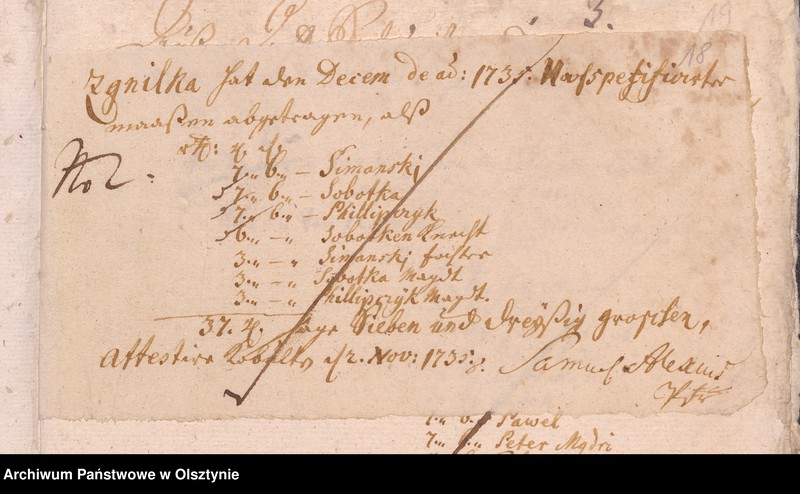 3.
19
18
Zgnilka hat den Decem de ao: 1735. Nachspezifizirter
maaßen abgetragen, alß
rth: g. ₰.
No 2.
7 " 6 " — Simanski
7 " 6 " — Sobotka
7 " 6 " — Phillipczyk
6 " — " Sobotken Knecht
3 " — " Simanski Tochter
3 " — " Sobotka Magdt
3 " — " Phillipczyk Magdt.
37. g. sage Sieben und dreyßig groschen,
Attestire Kobulten d. 2. Nov: 1735. Samuel Alexius
Pfr
7 " 6 " Pawel
7 " 6 " Peter Mądri
Archiwum Państwowe w Olsztynie